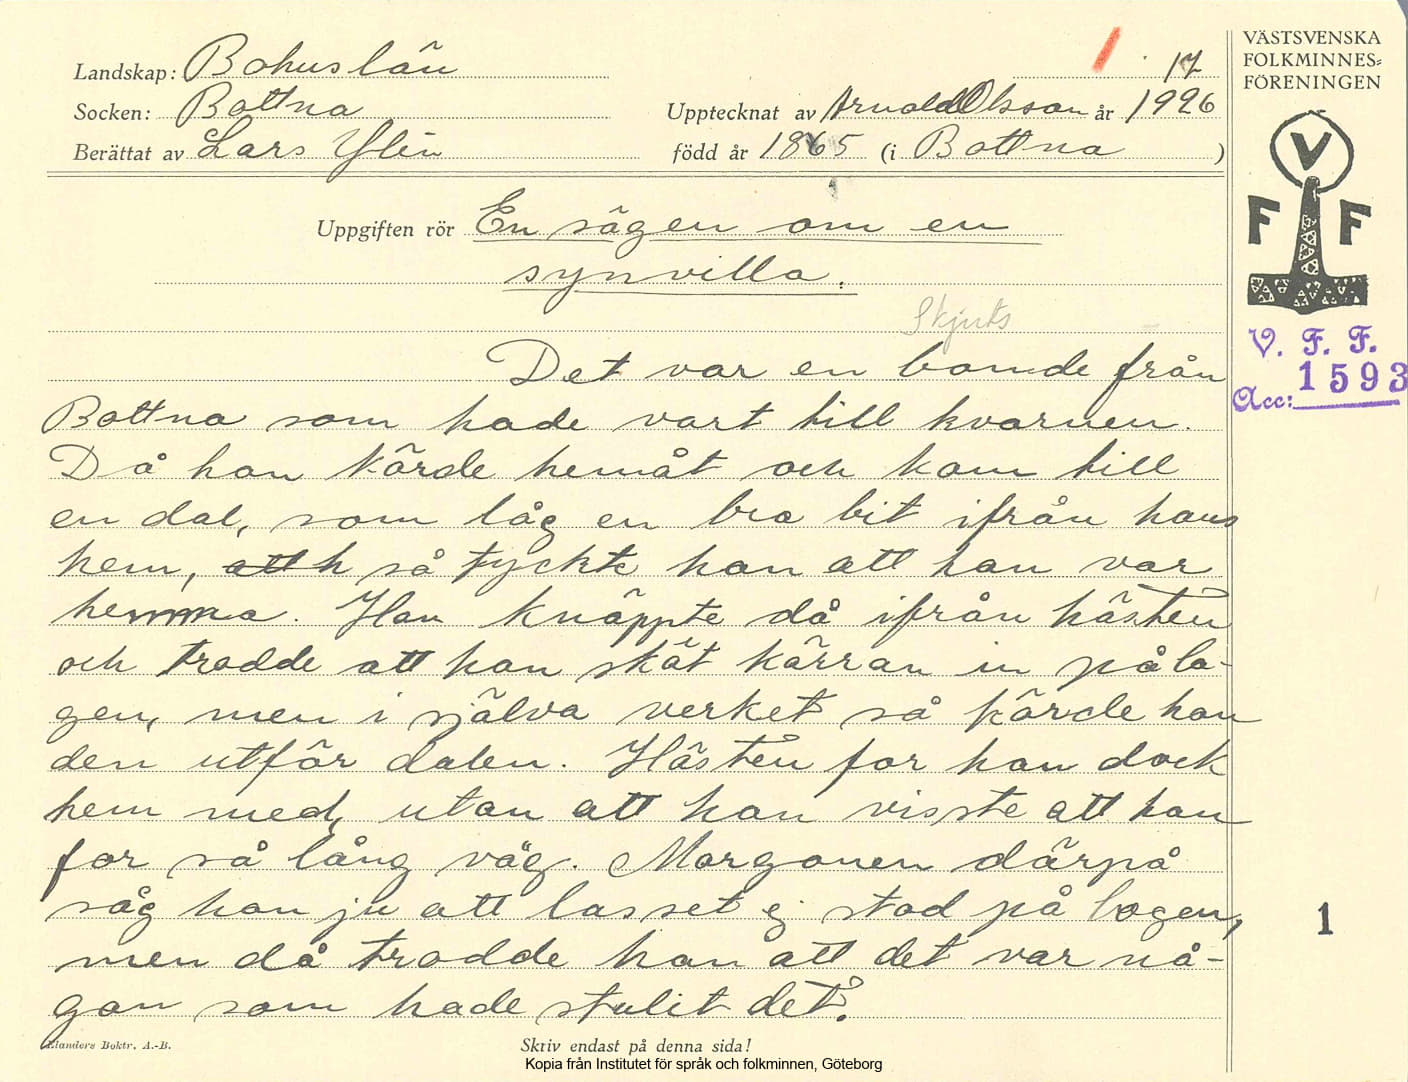 Landskap: Bohuslän
Socken: Bottna
Berättat av Lars Ylén
17
Upptecknat av Arnold Olsson år 1926
född år 1865 (i Bottna )
VÄSTSVENSKA
FOLKMINNES=
FÖRENINGEN
V
F F
V. F. F.
Acc: 1593
Uppgiften rör En sägen om en
synvilla.
Skjuts
Det var en bonde från
Bottna som hade vart till kvarnen.
Då han körde hemåt och kom till
en dal, som låg en bra bit ifrån hans
hem, att h så tyckte han att han var
hemma. Han knäppte då ifrån hästen
och trodde att han skät kärran in på lo-
gen, men i själva verket så körde han
den utför dalen. Hästen for han dock
hem med, utan att han visste att han
for så lång väg. Morgonen därpå
såg han ju att lasset ej stod på logen,
men då trodde han att det var nå-
gon som hade stulit det.
1
Elanders Boktr. A.-B.
Skriv endast på denna sida!
Kopia från Institutet för språk och folkminnen, Göteborg